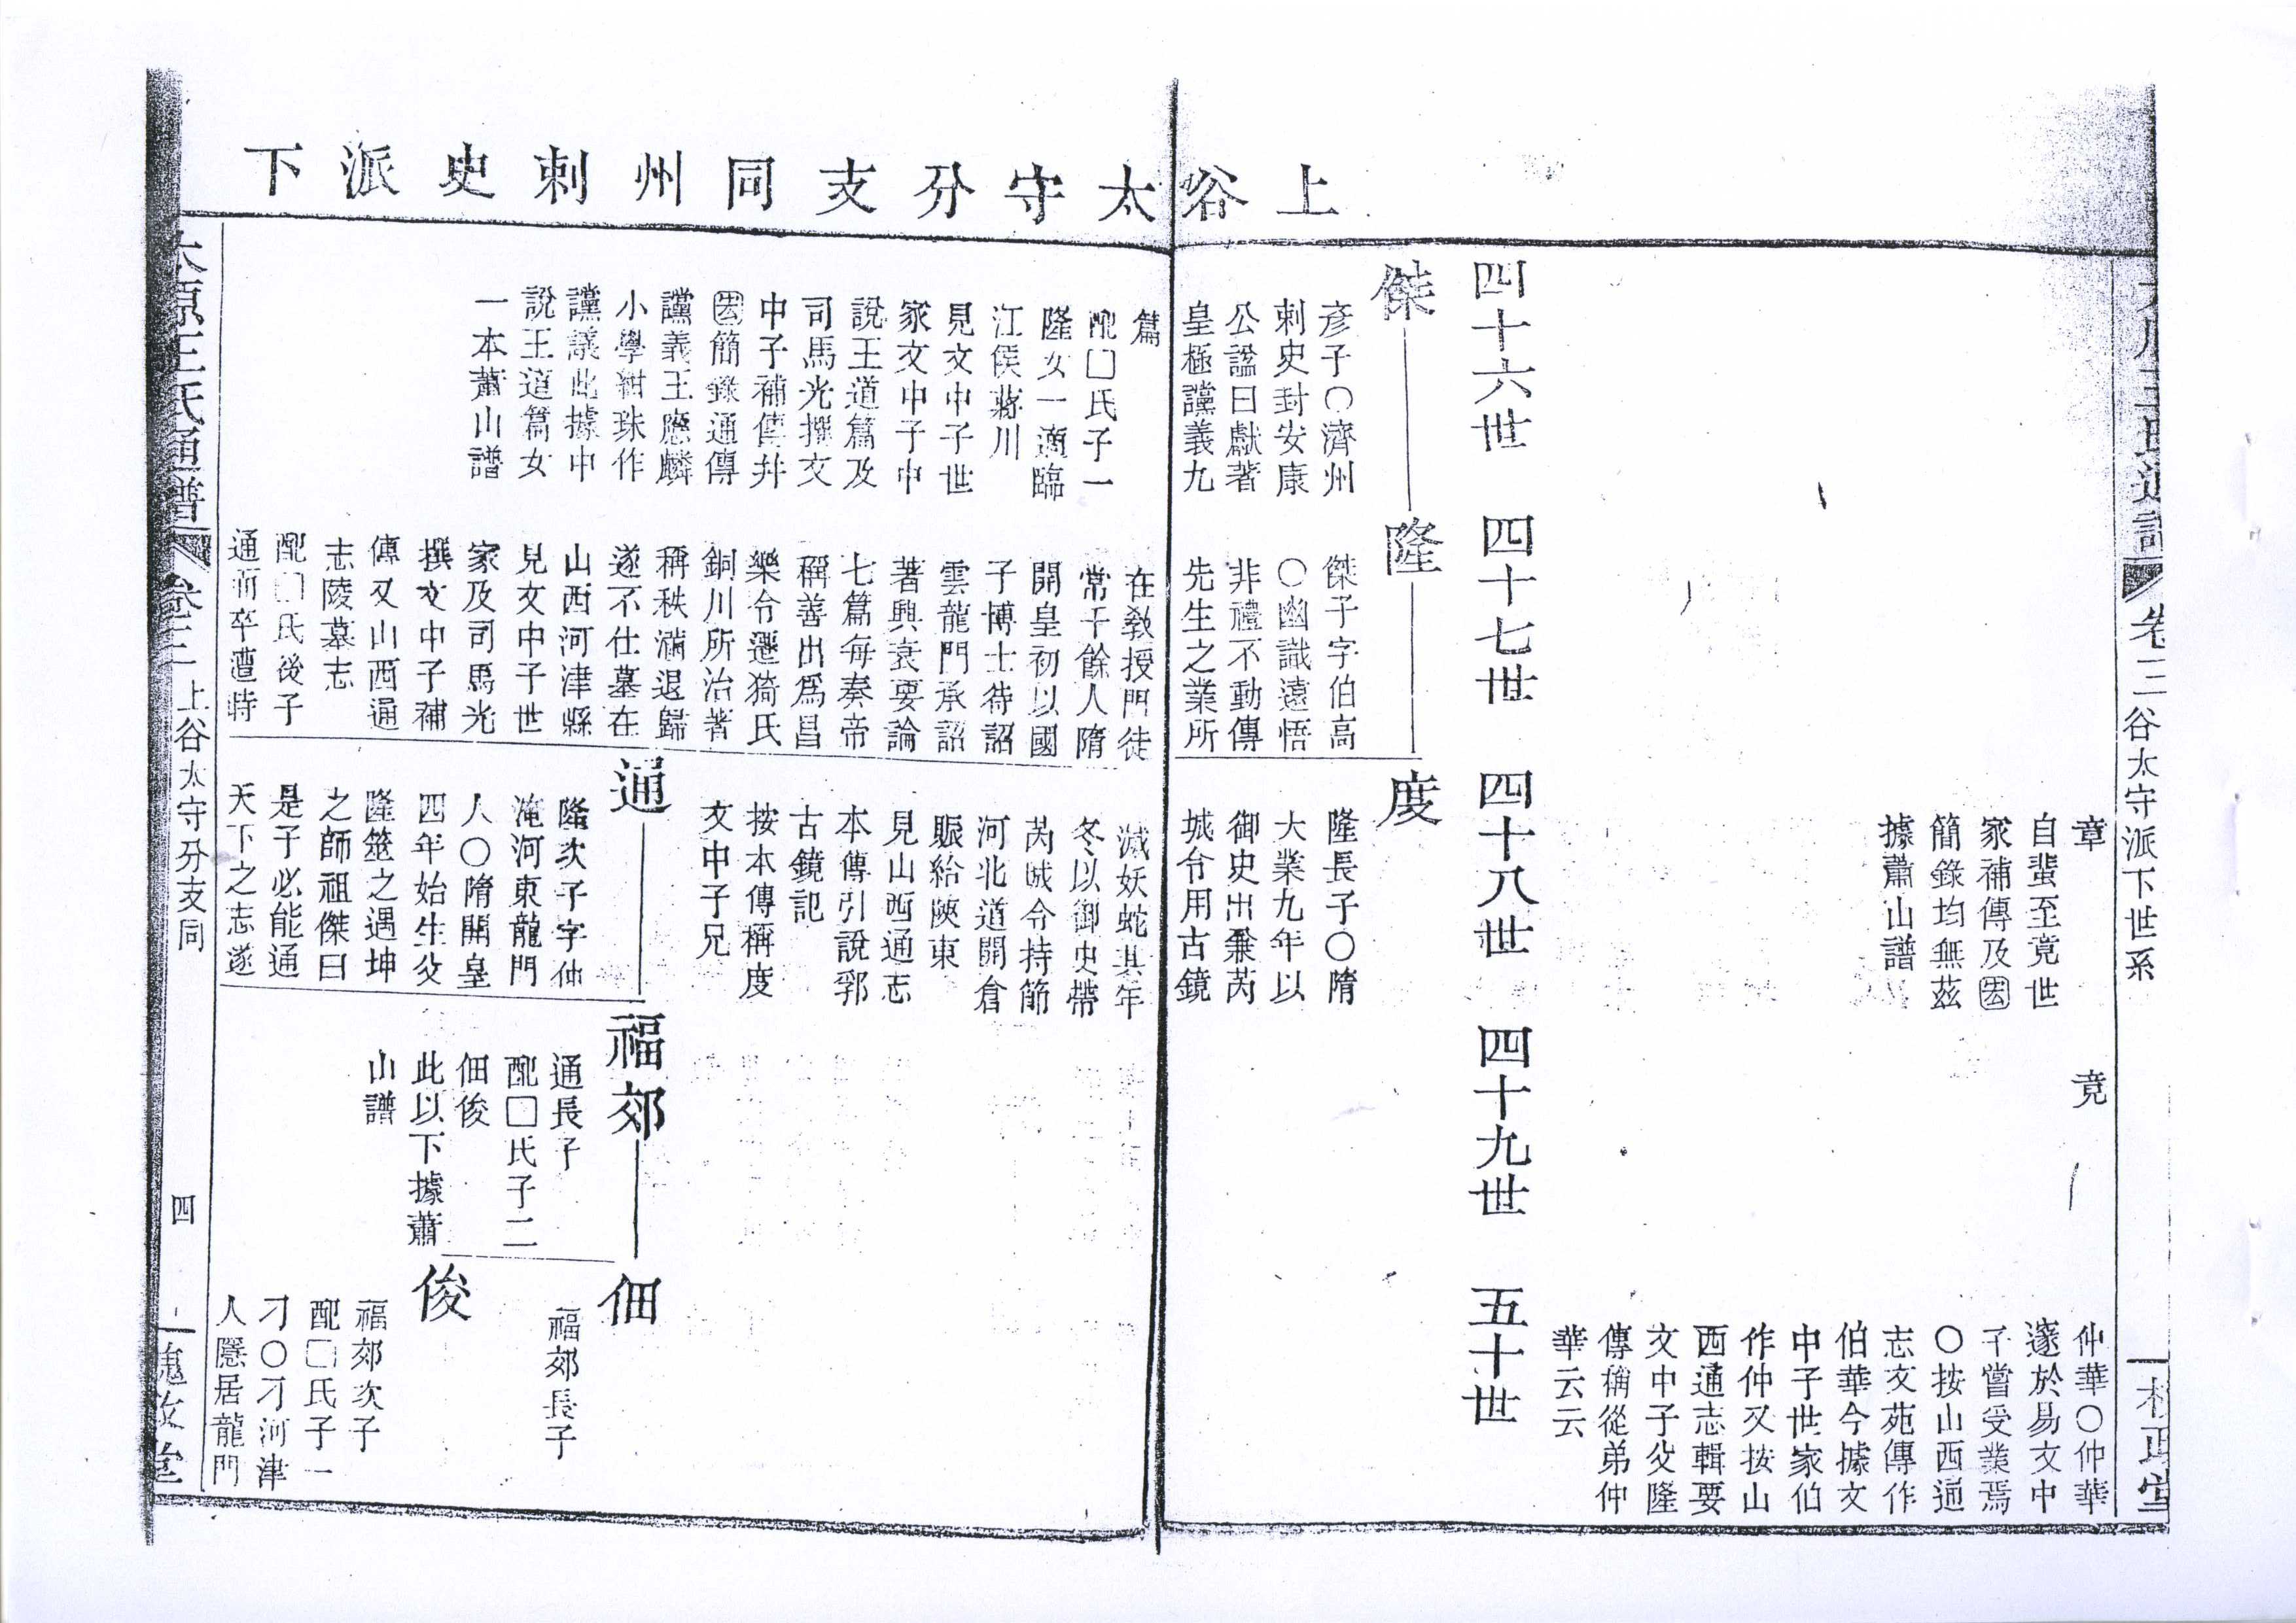 上谷太守分支同州刺史派下
卷三
谷太守派下世系
章
自蜚至竟世
家補傳及
簡錄均無茲
據蕭山譜
竟
仲華〇仲華
邃於易文中
子嘗受業焉
〇按山西通
志文苑傳作
伯華今據文
中子世家伯
作仲又按山
西通志輯要
文中子父隆
傳稱從弟仲
華云云
四十六世
四十七世
四十八世
四十九世
五十世
傑
彥子〇濟州
刺史封安康
公諡曰獻著
皇極讜義九
篇
配□氏子一
隆女一適臨
江侯蔣川
見文中子世
家文中子中
說王道篇及
司馬光撰文
中子補傳幷
簡錄通傳
讜義王應麟
小學紺珠作
讜議此據中
說王道篇女
一本蕭山譜
隆
傑子字伯高
〇幽識遠悟
非禮不動傳
先生之業所
在敎授門徒
常千餘人隋
開皇初以國
子博士待詔
雲龍門承詔
著興衰要論
七篇每奏帝
稱善出爲昌
樂令遷猗氏
銅川所治著
稱秩滿退歸
遂不仕墓在
山西河津縣
見文中子世
家及司馬光
撰文中子補
傳又山西通
志陵墓志
配□氏後子
通而卒遭時
度
隆長子〇隋
大業九年以
御史出兼芮
城令用古鏡
滅妖蛇其年
冬以御史帶
芮城令持節
河北道開倉
賑給陝東
見山西通志
本傳引說郛
古鏡記
按本傳稱度
文中子兄
通
隆次子字仲
淹河東龍門
人〇隋開皇
四年始生父
隆筮之遇坤
之師祖傑曰
是子必能通
天下之志遂
福郊
通長子
配□氏子二
佃俊
此以下據蕭
山譜
佃
福郊長子
俊
福郊次子
配□氏子一
刁〇刁河津
人隱居龍門
太原王氏通譜
卷三
上谷太守分支同
四